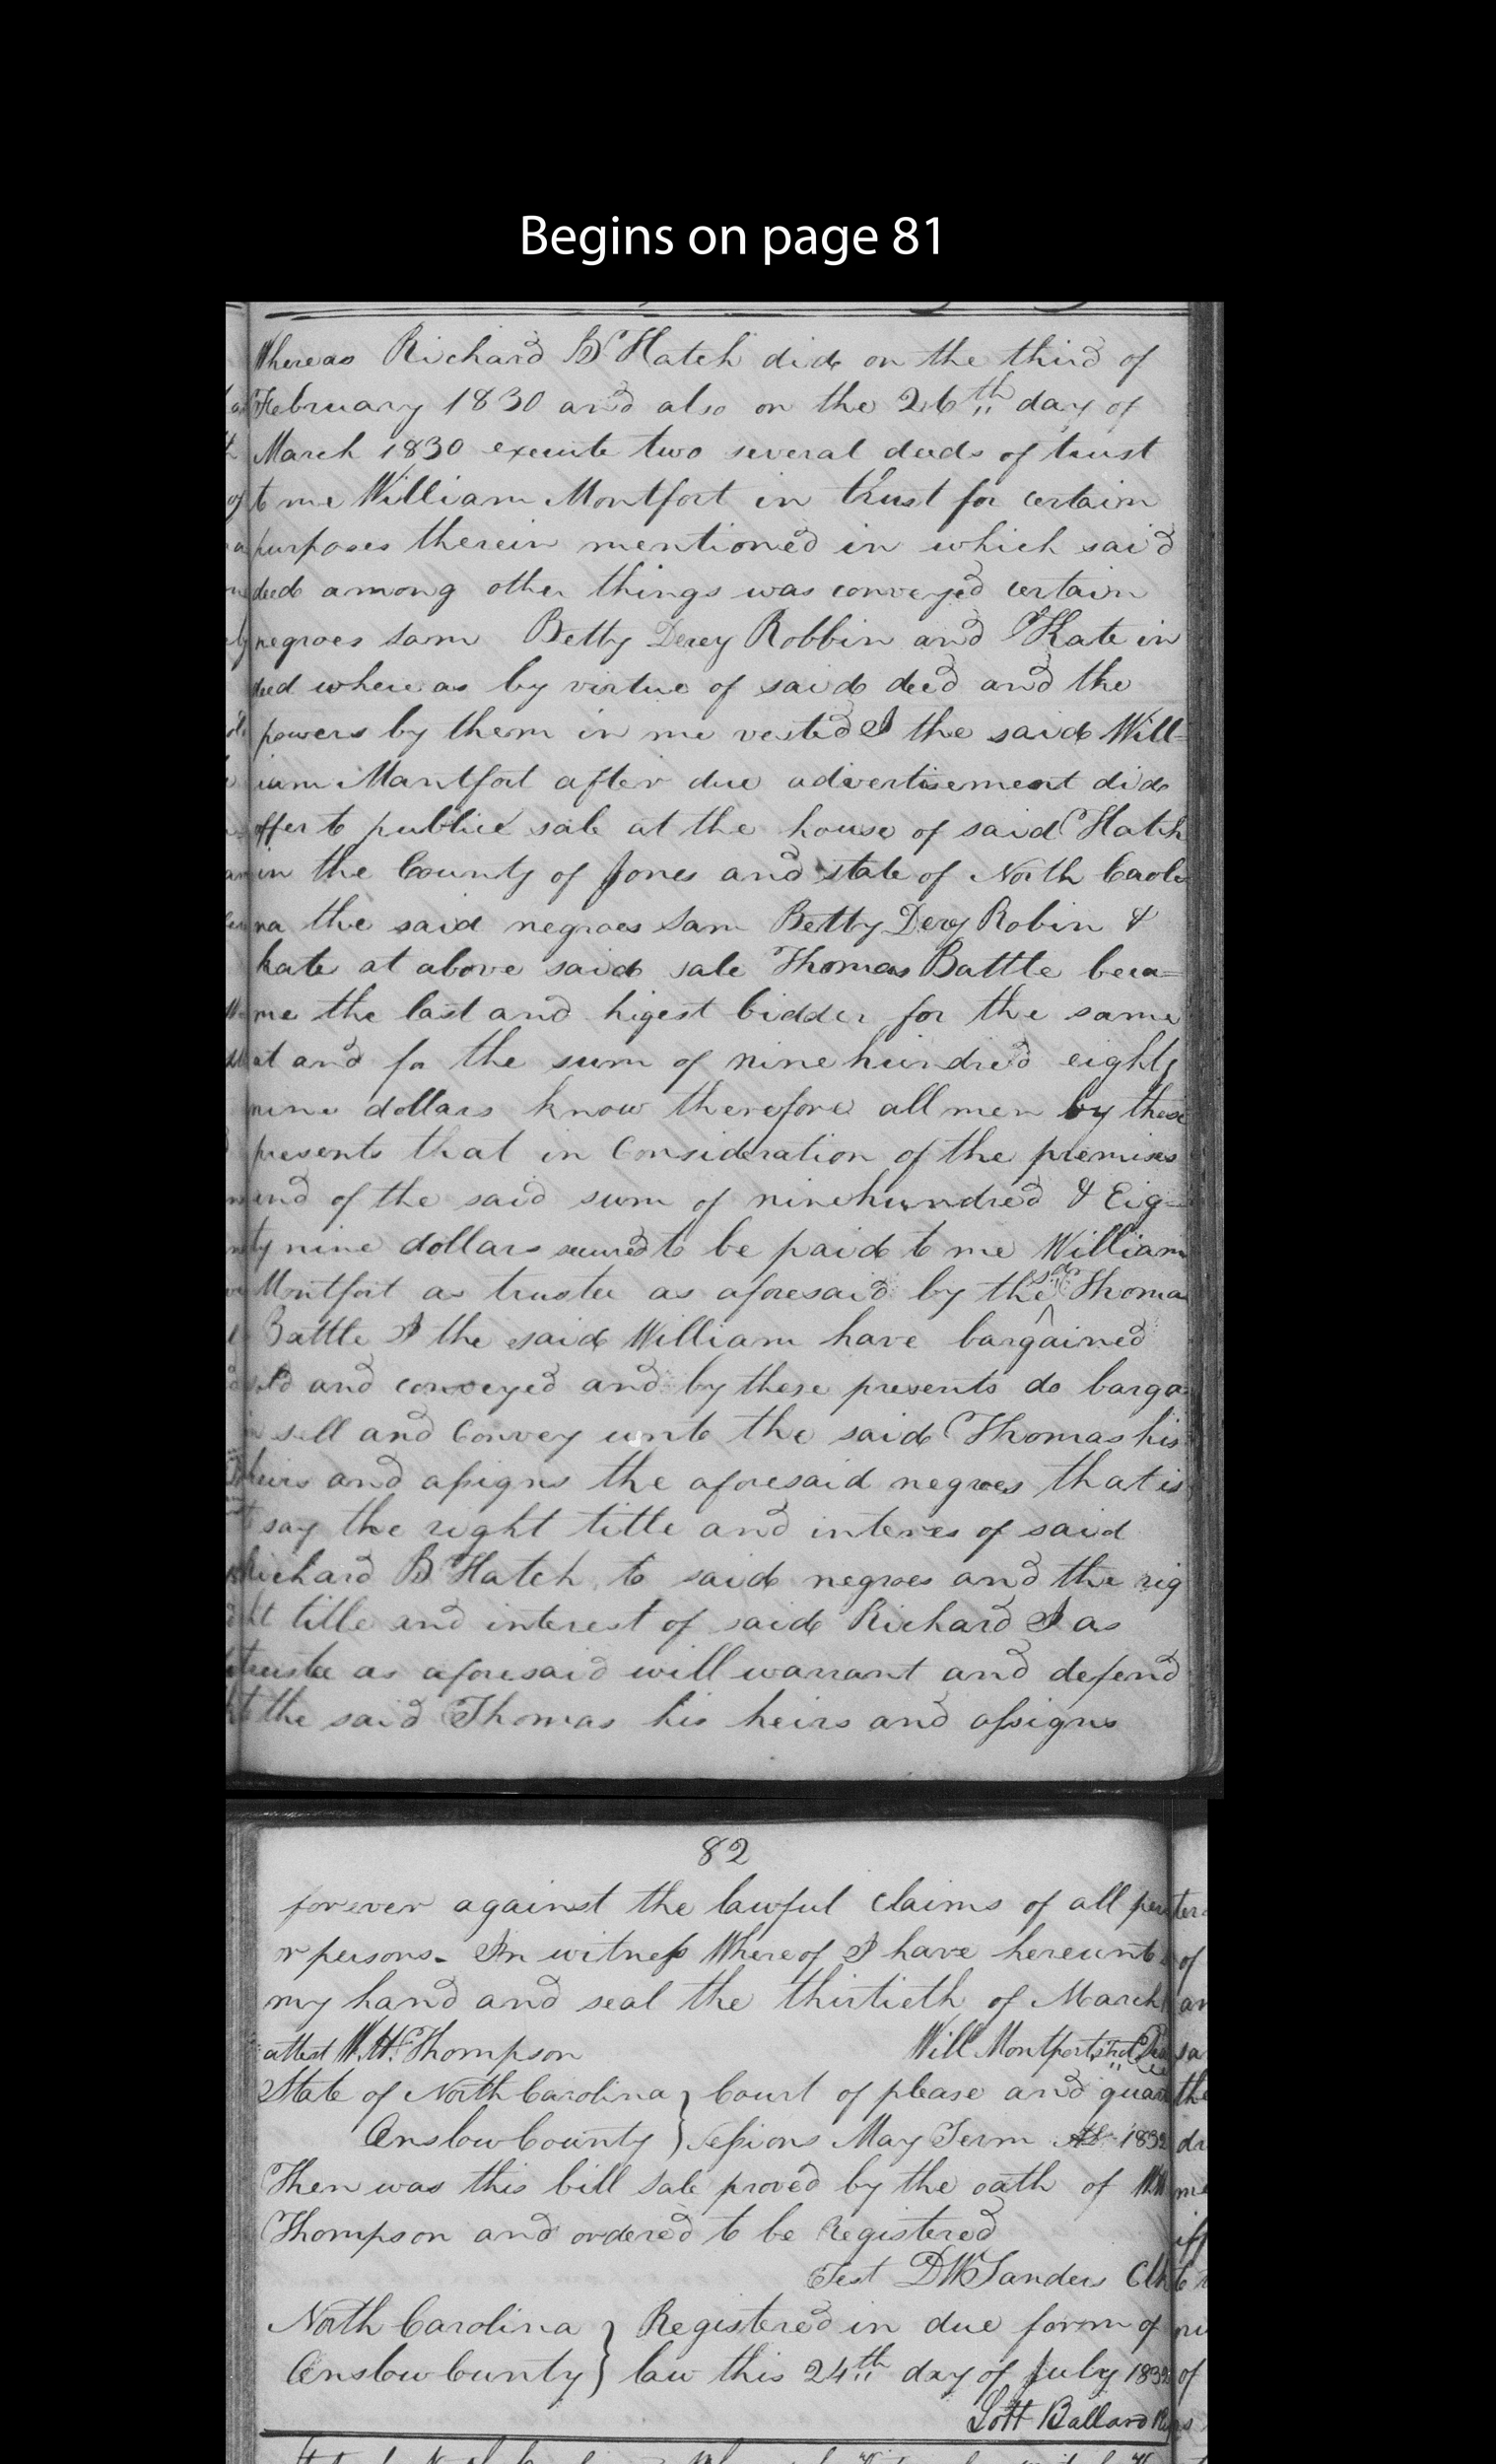 Begins on page 81
Whereas Richard B Hatch did on the third of
February 1830 and also on the 26th day of
March 1830 execute two several deeds of trust
to me William Montfort in trust for certain
purposes therein mentioned in which said
deed among other things was conveyed certain
negroes Sam Betty Derey Robbin and Kate in
deed where as by virtue of said deed and the
powers by them in me vested I the said Will-
iam Montfort after due advertisement did
offer to public sale at the house of said Hatch
in the County of Jones and state of North Caroli
na the said negroes Sam Betty Derey Robin &
Kate at above said sale Thomas Battle beca=
me the last and higest bidder for the same
at and for the sum of nine hundred eighty
nine dollars know therefore all men by these
presents that in Consideration of the premises
and of the said sum of nine hundred & Eig-
ty nine dollars secured to be paid to me William
Montfort as trustee as aforesaid by the sd Thomas
Battle I the said William have bargained
sold and conveyed and by these presents do barga
in sell and Convey unto the said Thomas his
heirs and assigns the aforesaid negroes that is
to say the right title and interes of said
Richard B Hatch to said negroes and the rig
ht title and interest of said Richard I as
trustee as aforesaid will warrant and defend
to the said Thomas his heirs and assigns
82
forever against the lawful claims of all person
or persons. In witness Whereof I have hereunto
my hand and seal the thirtieth of March
attest W. H. Thompson Will Montfort
State of North Carolina } Court of please and quar
Onslow County } Sessions May Term AD 1832
Then was this bill sale proved by the oath of WH
Thompson and ordered to be Registered
Test D W Sanders Clk
North Carolina } Registered in due form of
Onslow County } law this 24th day of July 1832
Lott Ballard